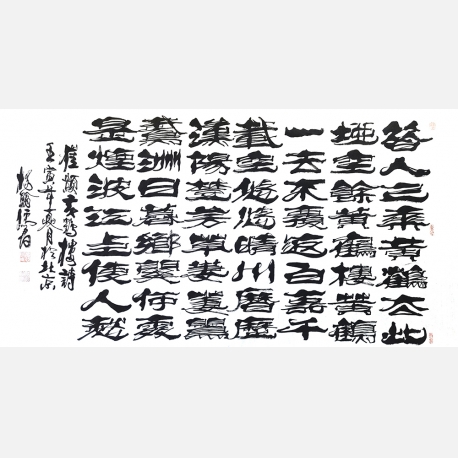 昔人已乘黄鶴去此
地空餘黄鶴樓黄鶴
一去不復返白雲千
載空悠悠晴川歷歷
漢陽樹芳草萋萋鸚
鵡洲日暮鄉關何處
是煙波江上使人愁
崔顥黄鶴樓詩
壬寅年月於北京